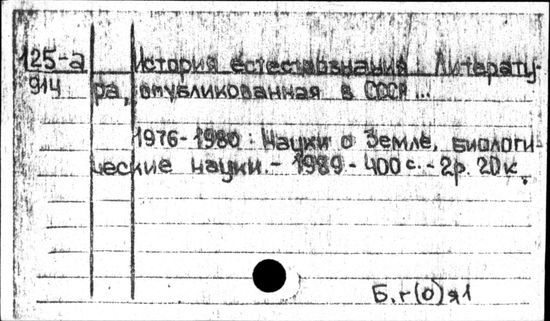 125-а История естествознания. Литерату-
914 ра, опубликованная в СССР...
1976-1980: Науки о Земле, биологи-
ческие науки. - 1989 - 400 с. - 2р. 20к.
Б.г(0)я1